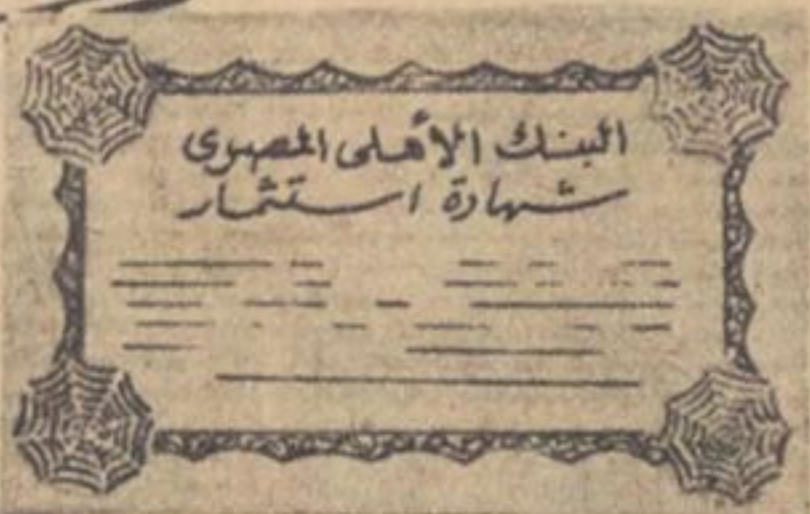 البنك الأهلى المصرى
شهادة استثمار